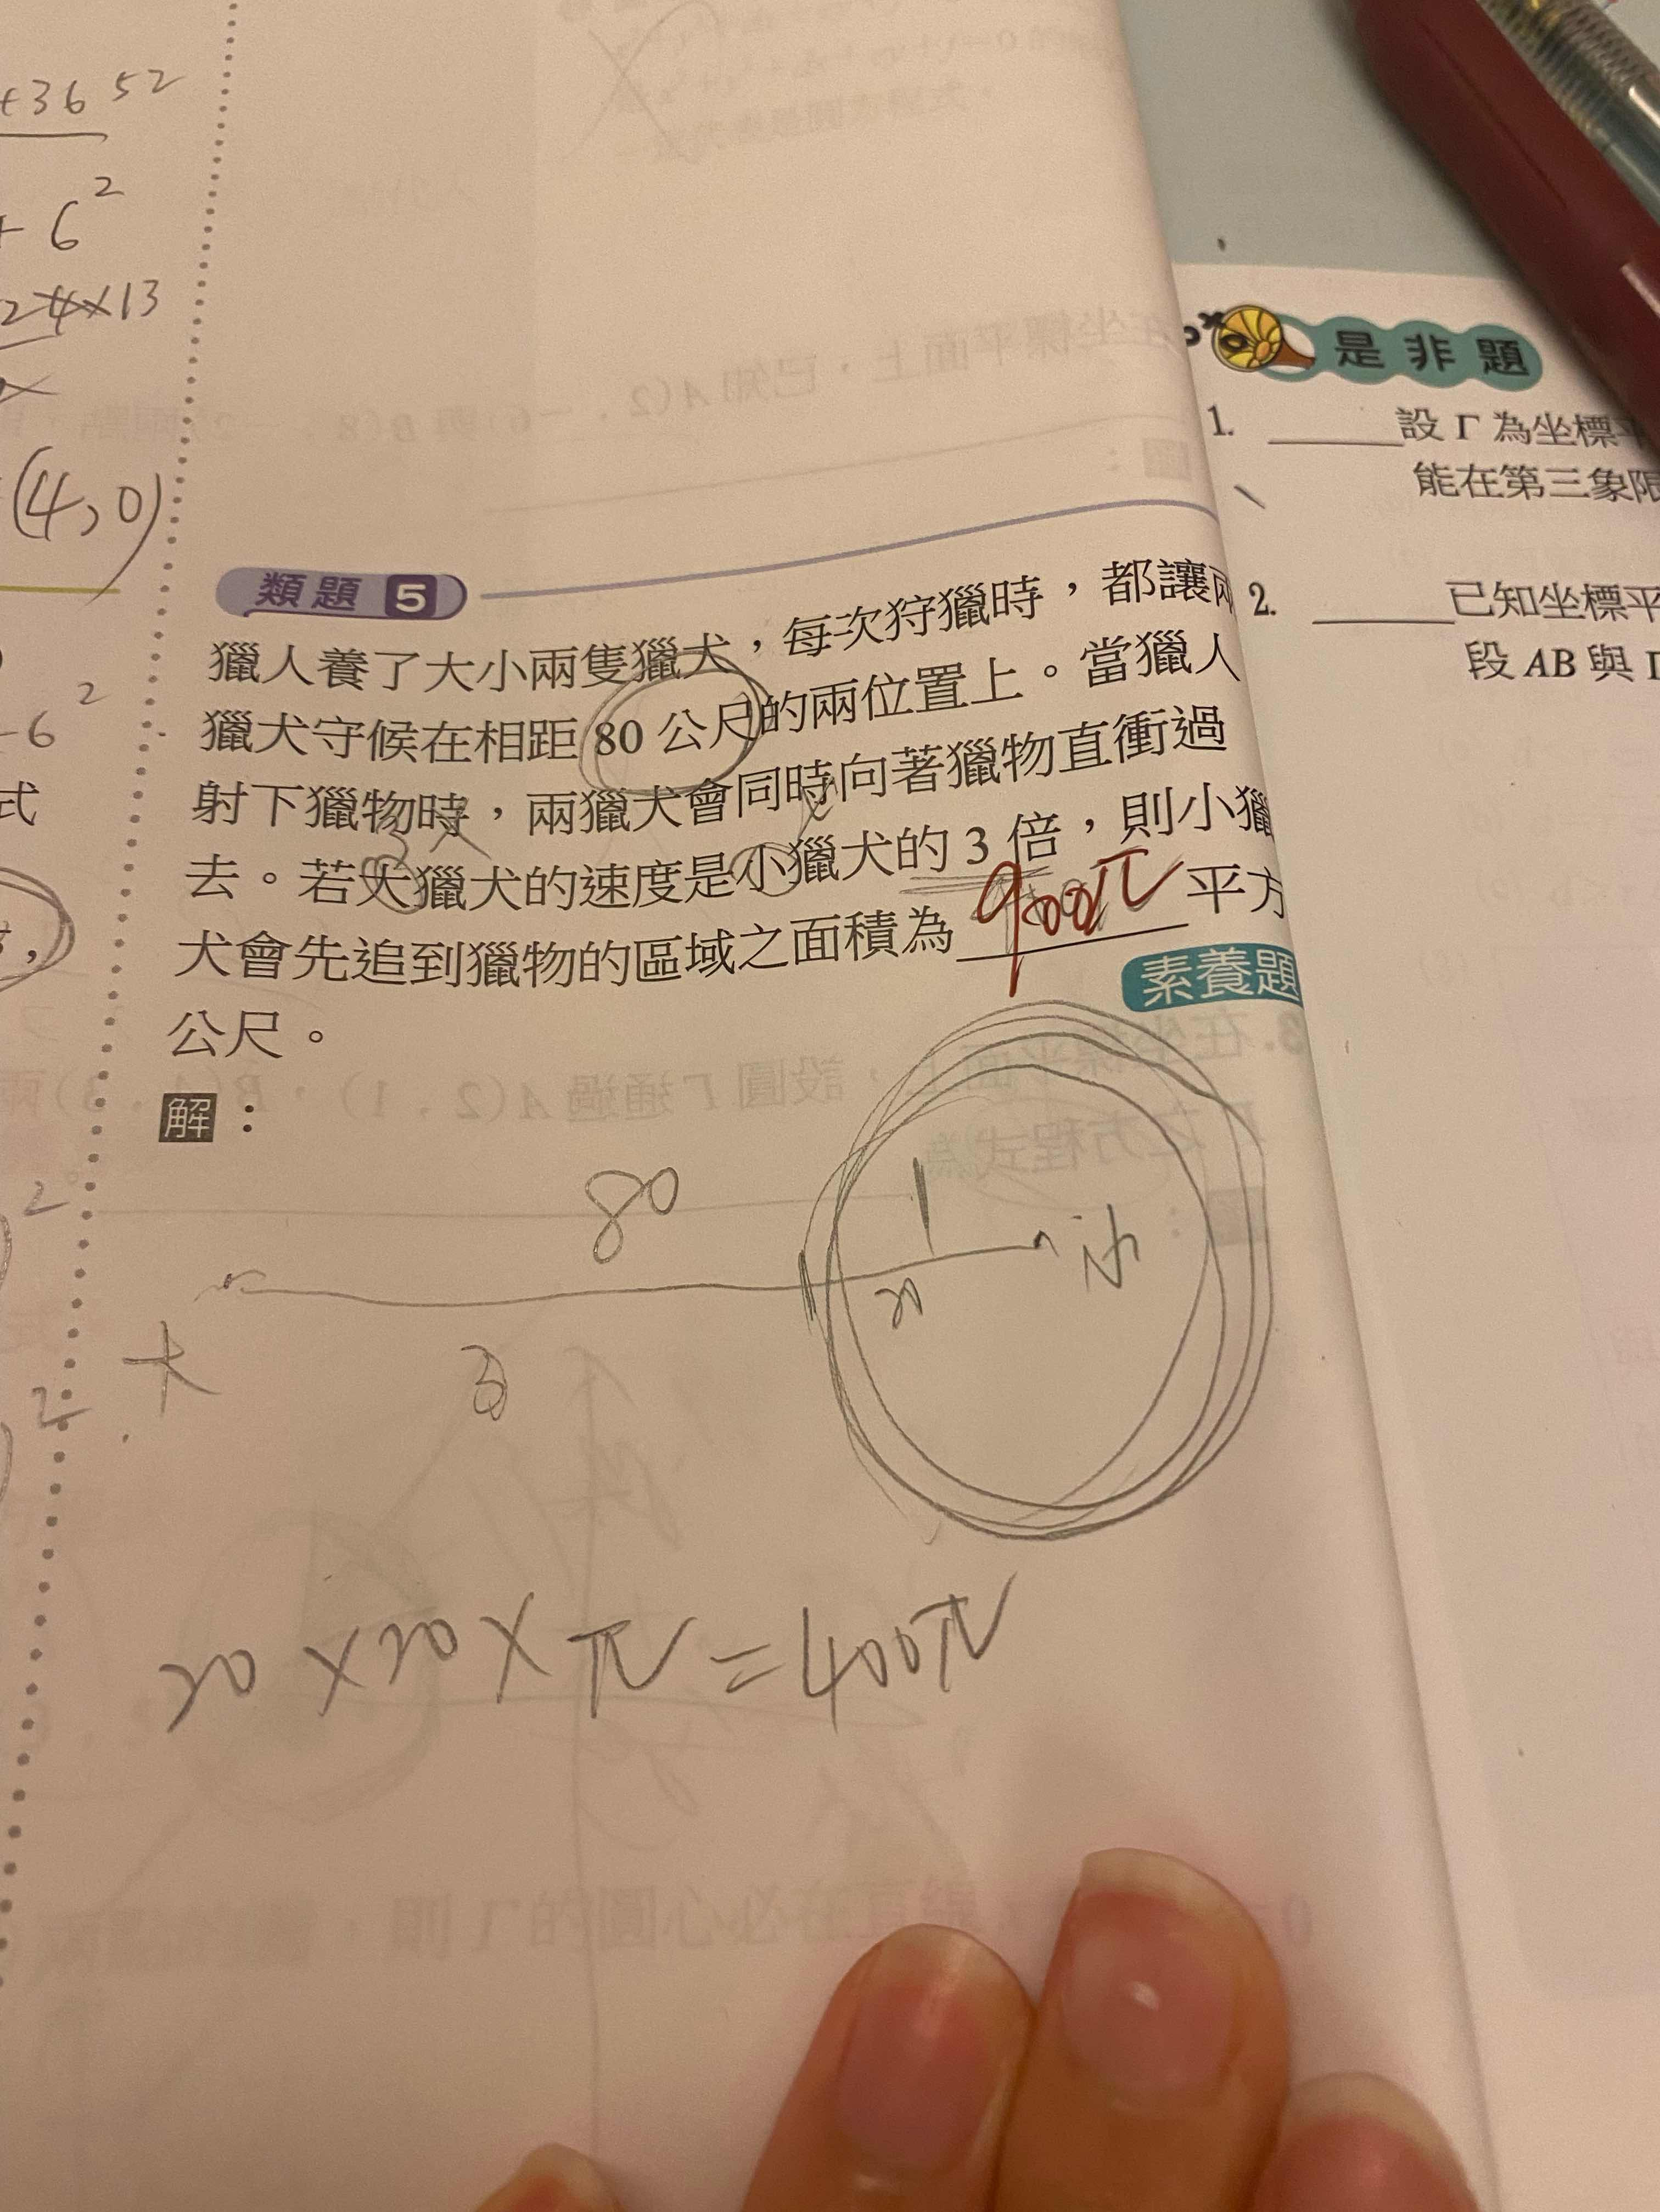 +36 52
+ 6²
24×13
(4,0)
-6²
式
類題 5
獵人養了大小兩隻獵犬，每次狩獵時，都讓兩
獵犬守候在相距 80 公尺的兩位置上。當獵人
射下獵物時，兩獵犬會同時向著獵物直衝過
去。若大獵犬的速度是小獵犬的 3 倍，則小獵
犬會先追到獵物的區域之面積為 900π 平方
公尺。
素養題
解：
80
1
20
小
大
3
20×20×π=400π
是非題
1. 設 Γ 為坐標平
能在第三象限
2. 已知坐標平
段 AB 與 Γ